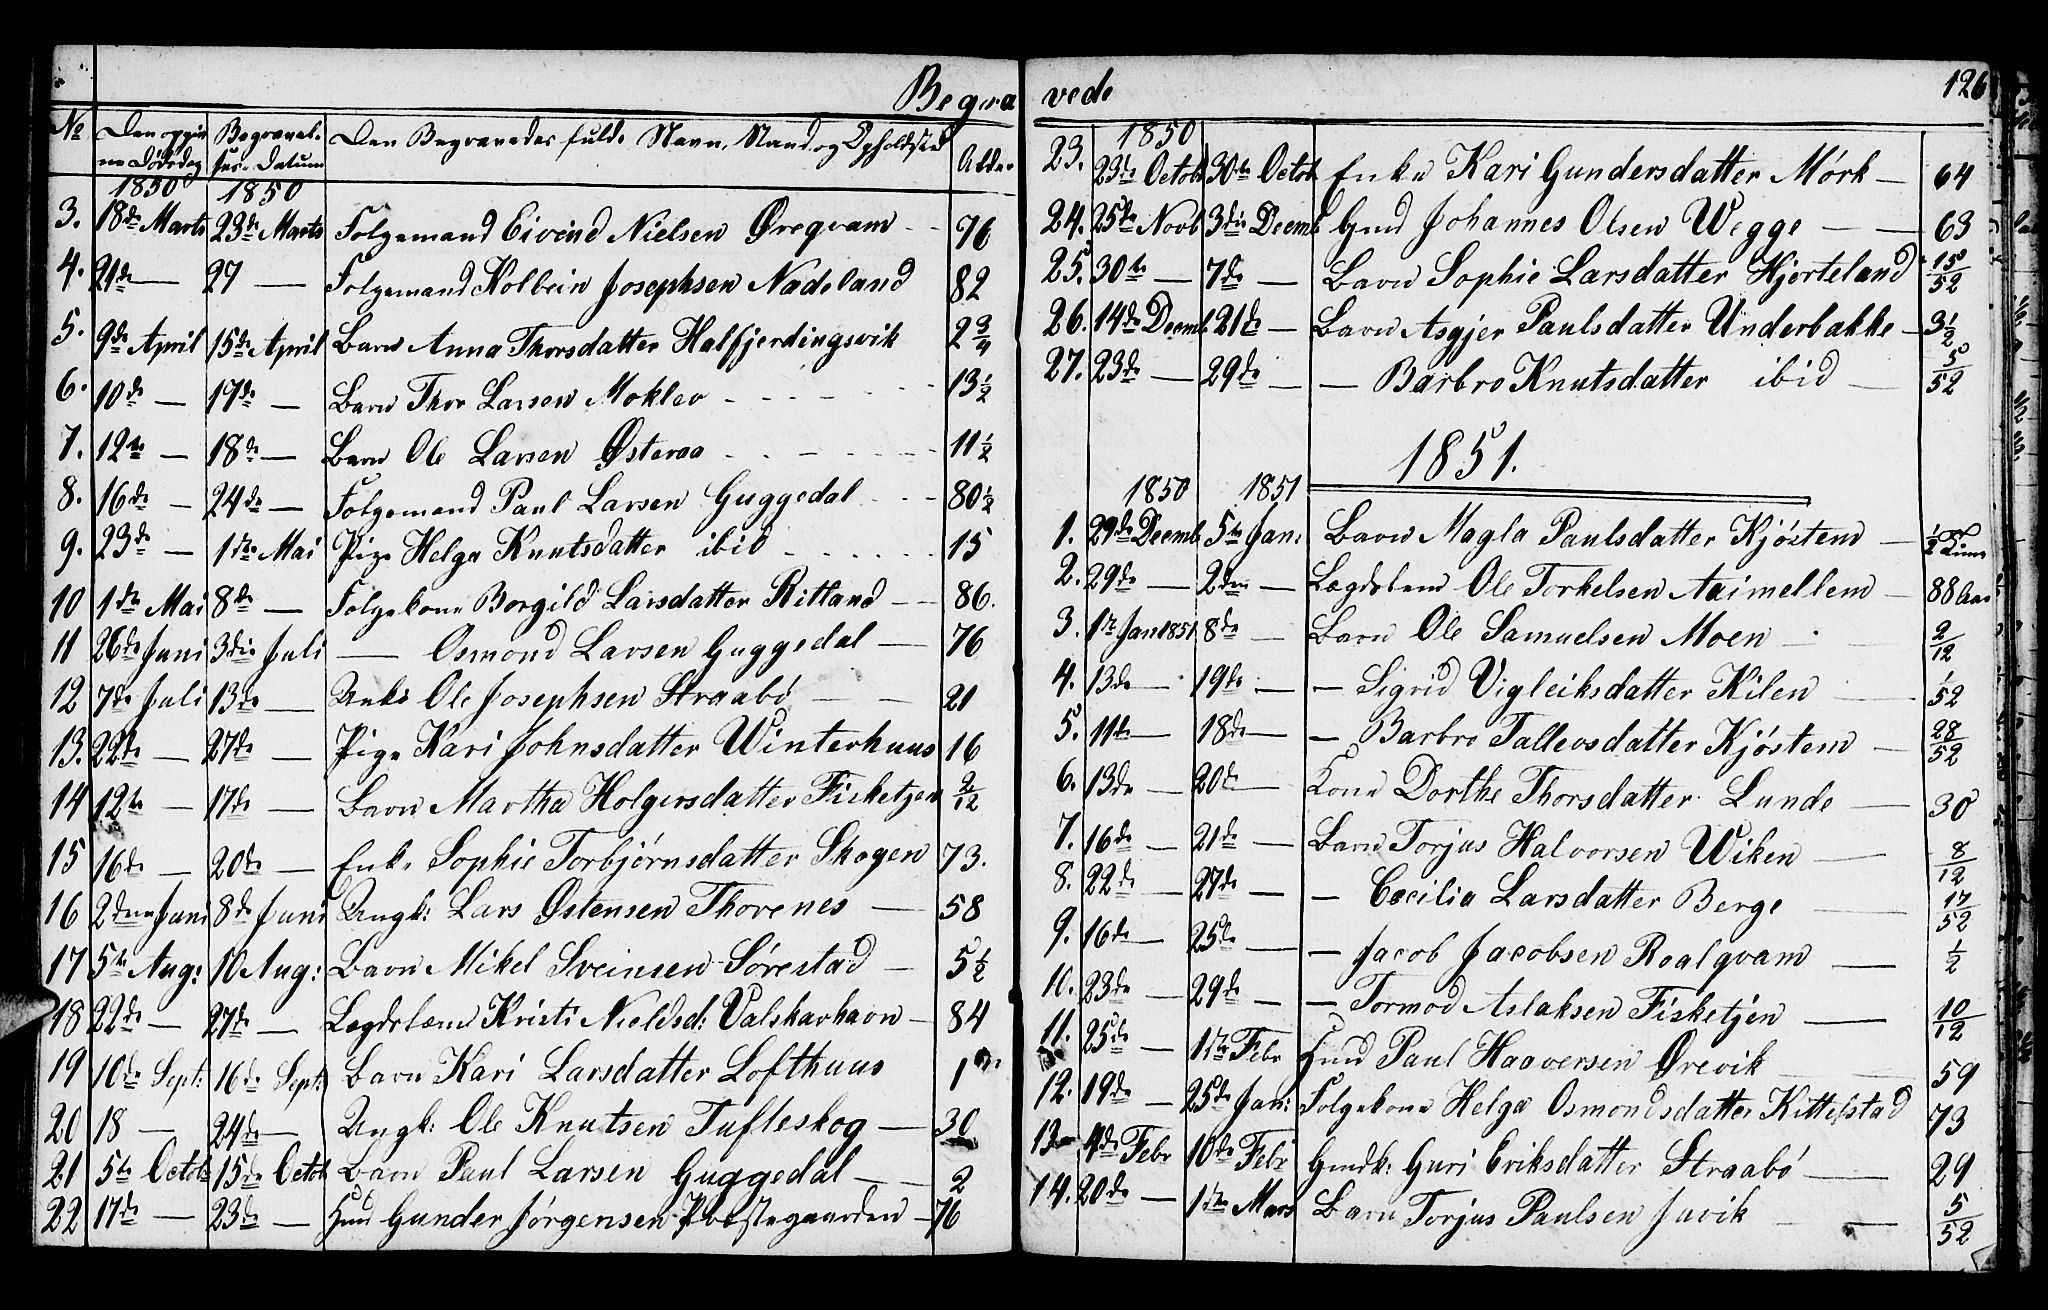 Begra
No Den opgiv Begravel- Den Begravedes fulde Navn, Stand og Opholdsted Alder
ne Dødsdag ses-Datum
1850 1850
3. 18de Marts 23de Marts Folgemand Eivind Nielsen Øregvam 76
4. 21de — 27 — Folgemand Kolbein Josephsen Nadeland 82
5. 9de April 15de April Barn Anna Thorsdatter Halffjerdingsvik 2 3/4
6. 10de — 17de — Barn Thor Larsen Moklev 13 1/2
7. 12te — 18de — Barn Ole Larsen Østeraa 11 1/2
8. 16de — 24de — Folgemand Paul Larsen Guggedal 80 1/2
9. 23de — 1ste Mai Pige Helga Knutsdatter ibid 15
10 1ste Mai 8de — Folgekone Borgild Larsdatter Ritland 86.
11 26de Juni 3die Juli — Osmond Larsen Guggedal — 76
12 7de Juli 13de — Ole Josephsen Straabø 21
13. 22de — 27de — Pige Kari Johnsdatter Winterhuus 16
14 12te — 17de — Barn Martha Holgersdatter Fisketjen 2/12
15 16de — 20de — Enke Sophie Torbjørnsdatter Skogen 73.
16 2den Juni 8de Juni Ungk: Lars Østensen Thorenes — 58
17 5te Aug: 10 Aug: Barn Mikel Sveinsen Sørestad — 5 1/2
18 22de — 27de — Lægdslem Kristi Nieldsd: Valskarhavn — 84
19 10de Sept: 16de Sept: Barn Kari Larsdatter Lofthuus 1
20 18 — 24de — Ungk: Ole Knutsen Tufteskog — 30
21 5te Octob 15de Octob Barn Paul Larsen Guggedal — 2
22 17de — 23de — Gmd Gunder Jørgensen Præstegaarden — 76
vede 126
1850
23. 23de Octob 30te Octob Enke Kari Gundersdatter Mørk — 64
24. 25de Novb 3die Decmb Gmd Johannes Olsen Wegge — 63
25. 30te — 7de — Barn Sophie Larsdatter Hjorteland 15/52
26. 14de Decmb. 21de — Barn Asgjer Paulsdatter Underbakke — 3 1/2
27. 23de — 29de — — Barbro Knutsdatter ibid — 5/52
1851.
1850 1851
1. 29de Decmb 5te Jan: Barn Magla Paulsdatter Kjøstem — 1/2 Time
2. 29de — 2den — Lægdslem Ole Torkelsen Aaimellem — 88 Aar
3. 1ste Jan 1851 8de — Barn Ole Samuelsen Moen 2/12
4. 13de — 19de — — Sigrid Vigleiksdatter Kilen 1/52
5. 11te — 18de — — Barbro Tallevsdatter Kjøstem — 28/52
6. 13de — 20de — Kone Dorthe Thorsdatter Lunde — 30
7. 16de — 21de — Barn Torjus Halvorsen Wiken — 8/12
8. 22de — 27de — — Cecilia Larsdatter Berge — 17/52
9. 16de — 25de — — Jacob Jacobsen Roalqvam — 1/2
10. 23de — 29de — — Tormod Aslaksen Fisketjen — 10/12
11. 25de — 1ste Febr Gmd Paul Haaversen Ørevik 59
12. 19de — 25de Jan: Folgekone Helga Osmondsdatter Kittelstad 73
13 4de Febr 10de Febr Gmdk: Guri Eriksdatter Straabø — 29
14. 20de — 1ste Mars Barn Torjus Paulsen Juvik — 5/52